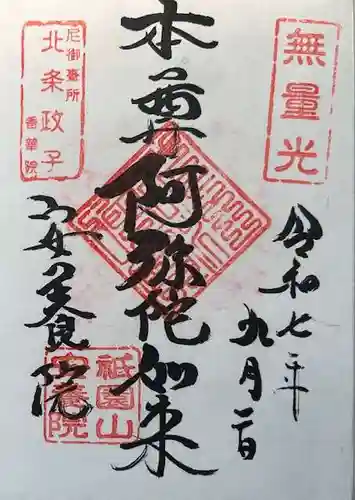 無量光
令和七年
九月二日
本尊阿弥陀如来
尼御臺所
北条政子
香華院
安養院
祗園山
安養院